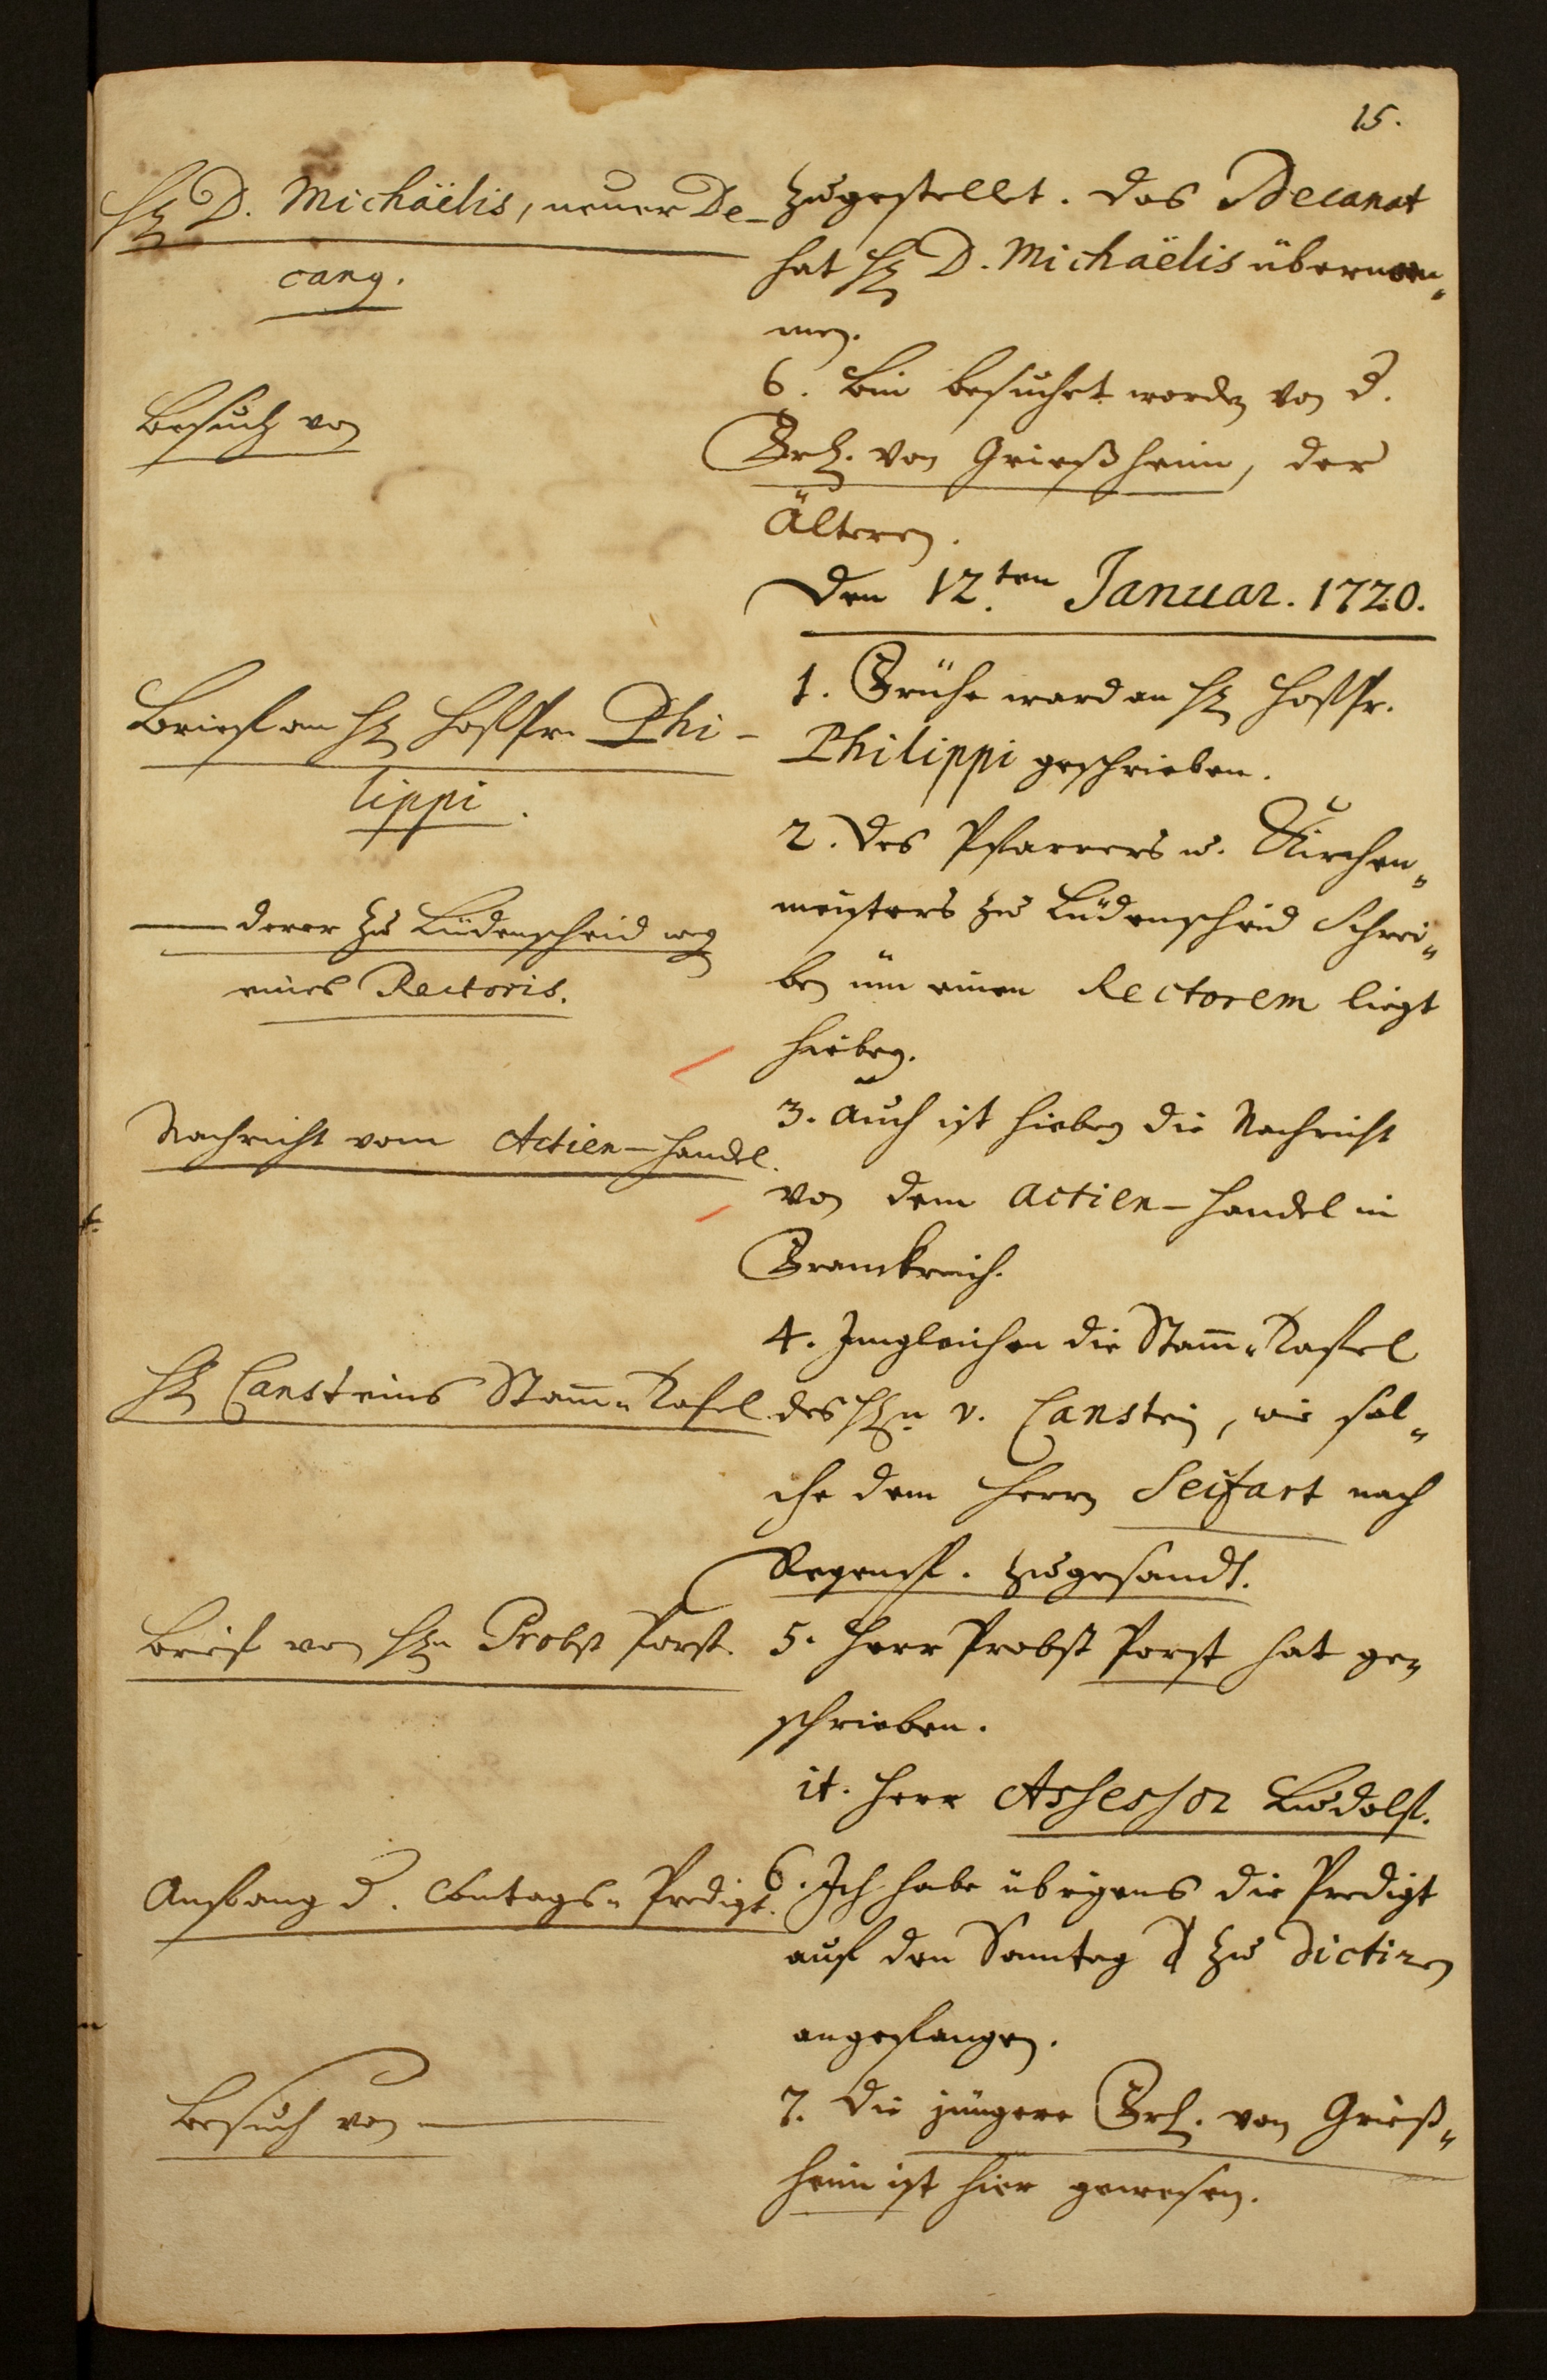 15.
H. D. Michäelis, neuer De-
cang.
zugestellt. Das Decanat
hat H. D. Michäelis übernom„
men.
Besuch von
6. Bin besuchet worden von d.
Frl. von Grießheim, der
Älteren.
Den 12.ten Januar. 1720.
Brief an H. Hoffr. Phi-
lippi.
1. Frühe ward an H. Hoffr.
Philippi geschrieben.
—— derer zu Lüdenscheid weg
eines Rectoris.
2. Des Pfarrers u. Kirchen„
meisters zu Lüdenscheid Schrei„
ben üm einen Rectorem liegt
hiebey.
Nachricht vom Actien-Handel.
3. Auch ist hiebey die Nachricht
von dem Actien-Handel in
Franckreich.
H. Cansteins Stam̄„Tafel
4. Imgleichen die Stam̄„Taffel
des Hn. v. Canstein, wie sol„
che dem Herrn Seifart nach
Regensp. zugesandt.
Brief von Hn Probst Porst.
5. Herr Probst Porst hat ge„
schrieben.
it. Herr Assessor Ludolff.
Anfang d. Sontags„Predigt.
6. Ich habe übrigens die Predigt
auf den Sonntag zu dictiren
angefangen.
Besuch von ——
7. Die jüngere Frl. von Grieß„
heim ist hier gewesen.